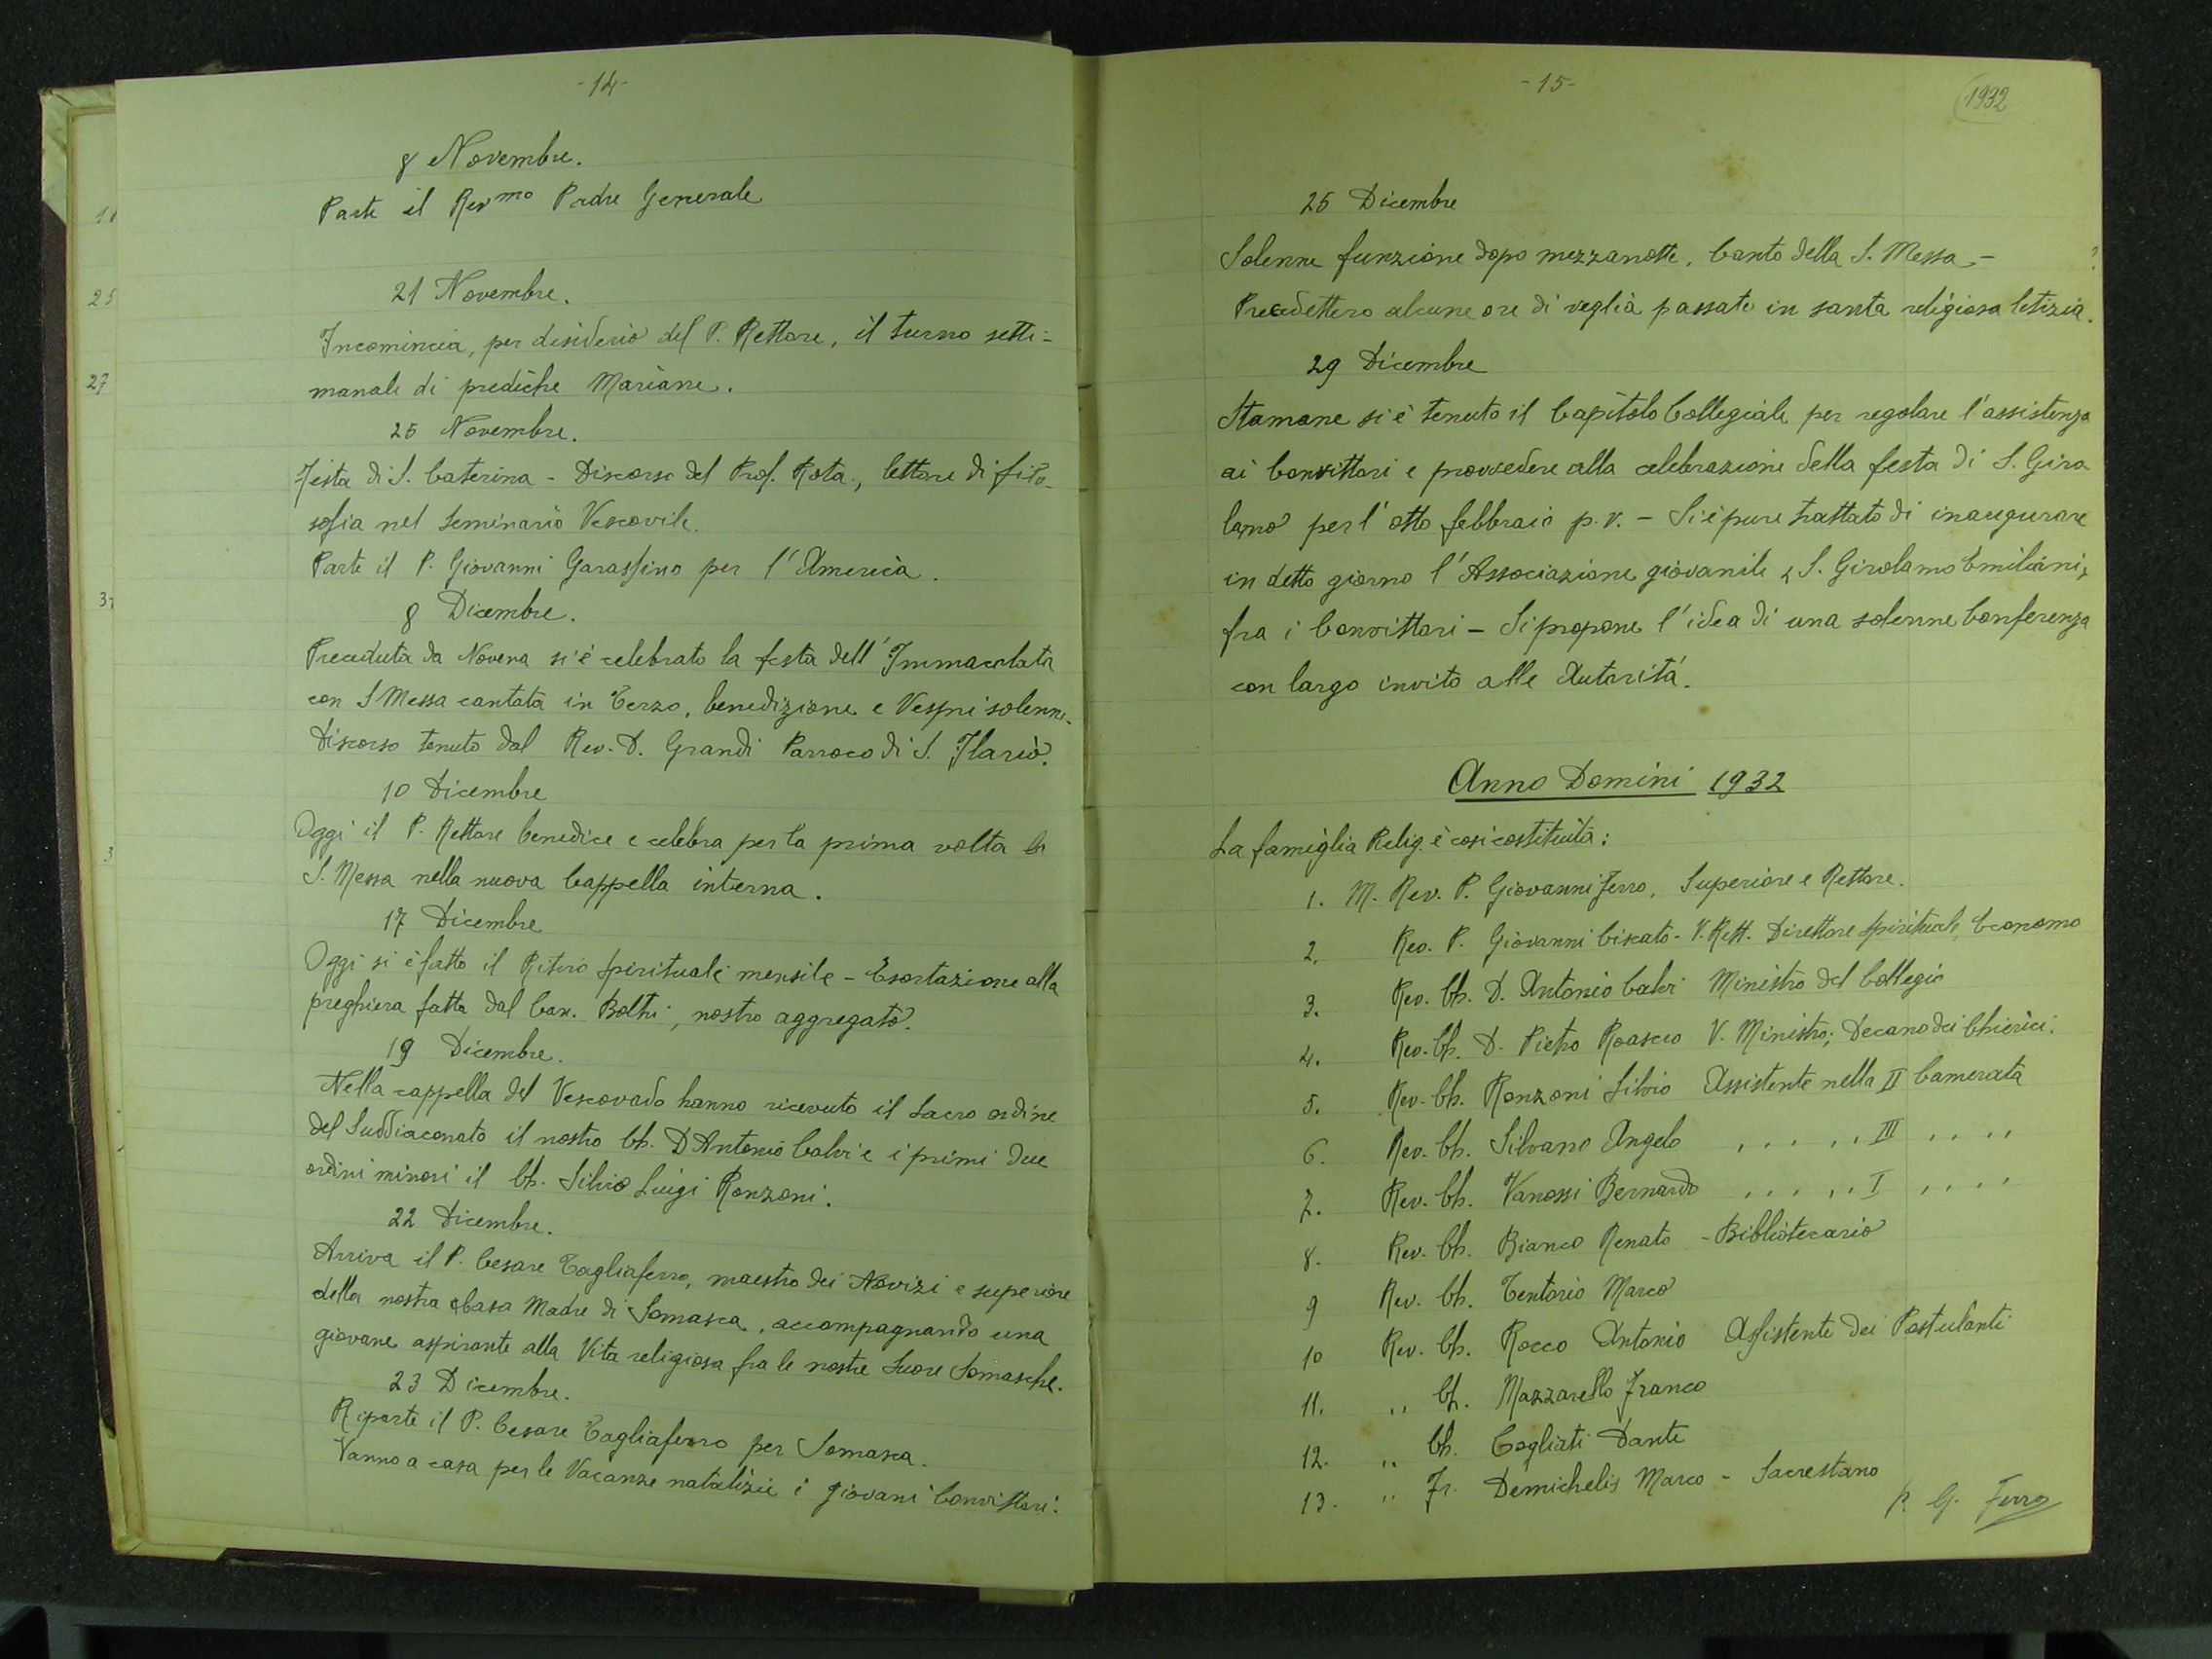 -14-
8 Novembre.
Parte il Revmo Padre Generale
21 Novembre.
Incomincia, per desiderio del P. Rettore, il turno setti-
manale di prediche Mariane.
25 Novembre.
Festa di S. Caterina - Discorso del Prof. Rota., lettore di filo-
sofia nel Seminario Vescovile.
Parte il P. Giovanni Garassino per l'America.
8 Dicembre.
Preceduta da Novena si è celebrato la festa dell'Immacolata
con S Messa cantata in Terzo, benedizione e Vespri solenni.
Discorso tenuto dal Rev. D. Grandi Parroco di S. Ilario.
10 Dicembre
Oggi il P. Rettore benedice e celebra per la prima volta la
S. Messa nella nuova Cappella interna.
17 Dicembre
Oggi si è fatto il Ritiro spirituale mensile - Esortazione alla
preghiera fatta dal Can. Boltri, nostro aggregato.
19 Dicembre.
Nella cappella del Vescovado hanno ricevuto il Sacro ordine
del Suddiaconato il nostro Ch. D Antonio Calvi e i primi due
ordini minori il Ch. Silvio Luigi Ronzoni.
22 Dicembre.
Arriva il P. Cesare Tagliaferro, maestro dei Novizi e superiore
della nostra Casa Madre di Somasca, accompagnando una
giovane aspirante alla Vita religiosa fra le nostre Suore Somasche.
23 Dicembre.
Riparte il P. Cesare Tagliaferro per Somasca.
Vanno a casa per le Vacanze natalizie i giovani Convittori.
-15-
1932
25 Dicembre
Solenne funzione dopo mezzanotte, Canto della S. Messa -
Precedettero alcune ore di veglia passate in santa religiosa letizia.
29 Dicembre
Stamane si è tenuto il Capitolo Collegiale per regolare l'assistenza
ai Convittori e provvedere alla celebrazione della festa di S. Giro
lamo per l'otto febbraio p.v. - Si è pure trattato di inaugurare
in detto giorno l'Associazione giovanile "S. Girolamo Emiliani"
fra i Convittori - Si propone l'idea di una solenne Conferenza
con largo invito alle Autoritá.
Anno Domini 1932
La famiglia Relig. è cosi costituita:
1. M. Rev. P. Giovanni Ferro, Superiore e Rettore.
2. Rev. P. Giovanni Ciscato - V. Rett. Direttore Spirituale, Economo
3. Rev. Ch. D. Antonio Calvi Ministro del Collegio
4. Rev. Ch. D. Pietro Roascio V. Ministro; Decano dei Chierici.
5. Rev. Ch. Ronzoni Silvio Assistente nella II Camerata
6. Rev. Ch. Silvano Angelo , , , , , III , , , ,
7. Rev. Ch. Vanossi Bernardo , , , , , I , , , ,
8. Rev. Ch. Bianco Renato - Bibliotecario
9 Rev. Ch. Tentorio Marco
10 Rev. Ch. Rocco Antonio Assistente dei Postulanti
11. ,, Ch. Mazzarello Franco
12. ,, Ch. Cogliati Dante
13. ,, Fr. Demichelis Marco - Sacrestano
P. G. Ferro